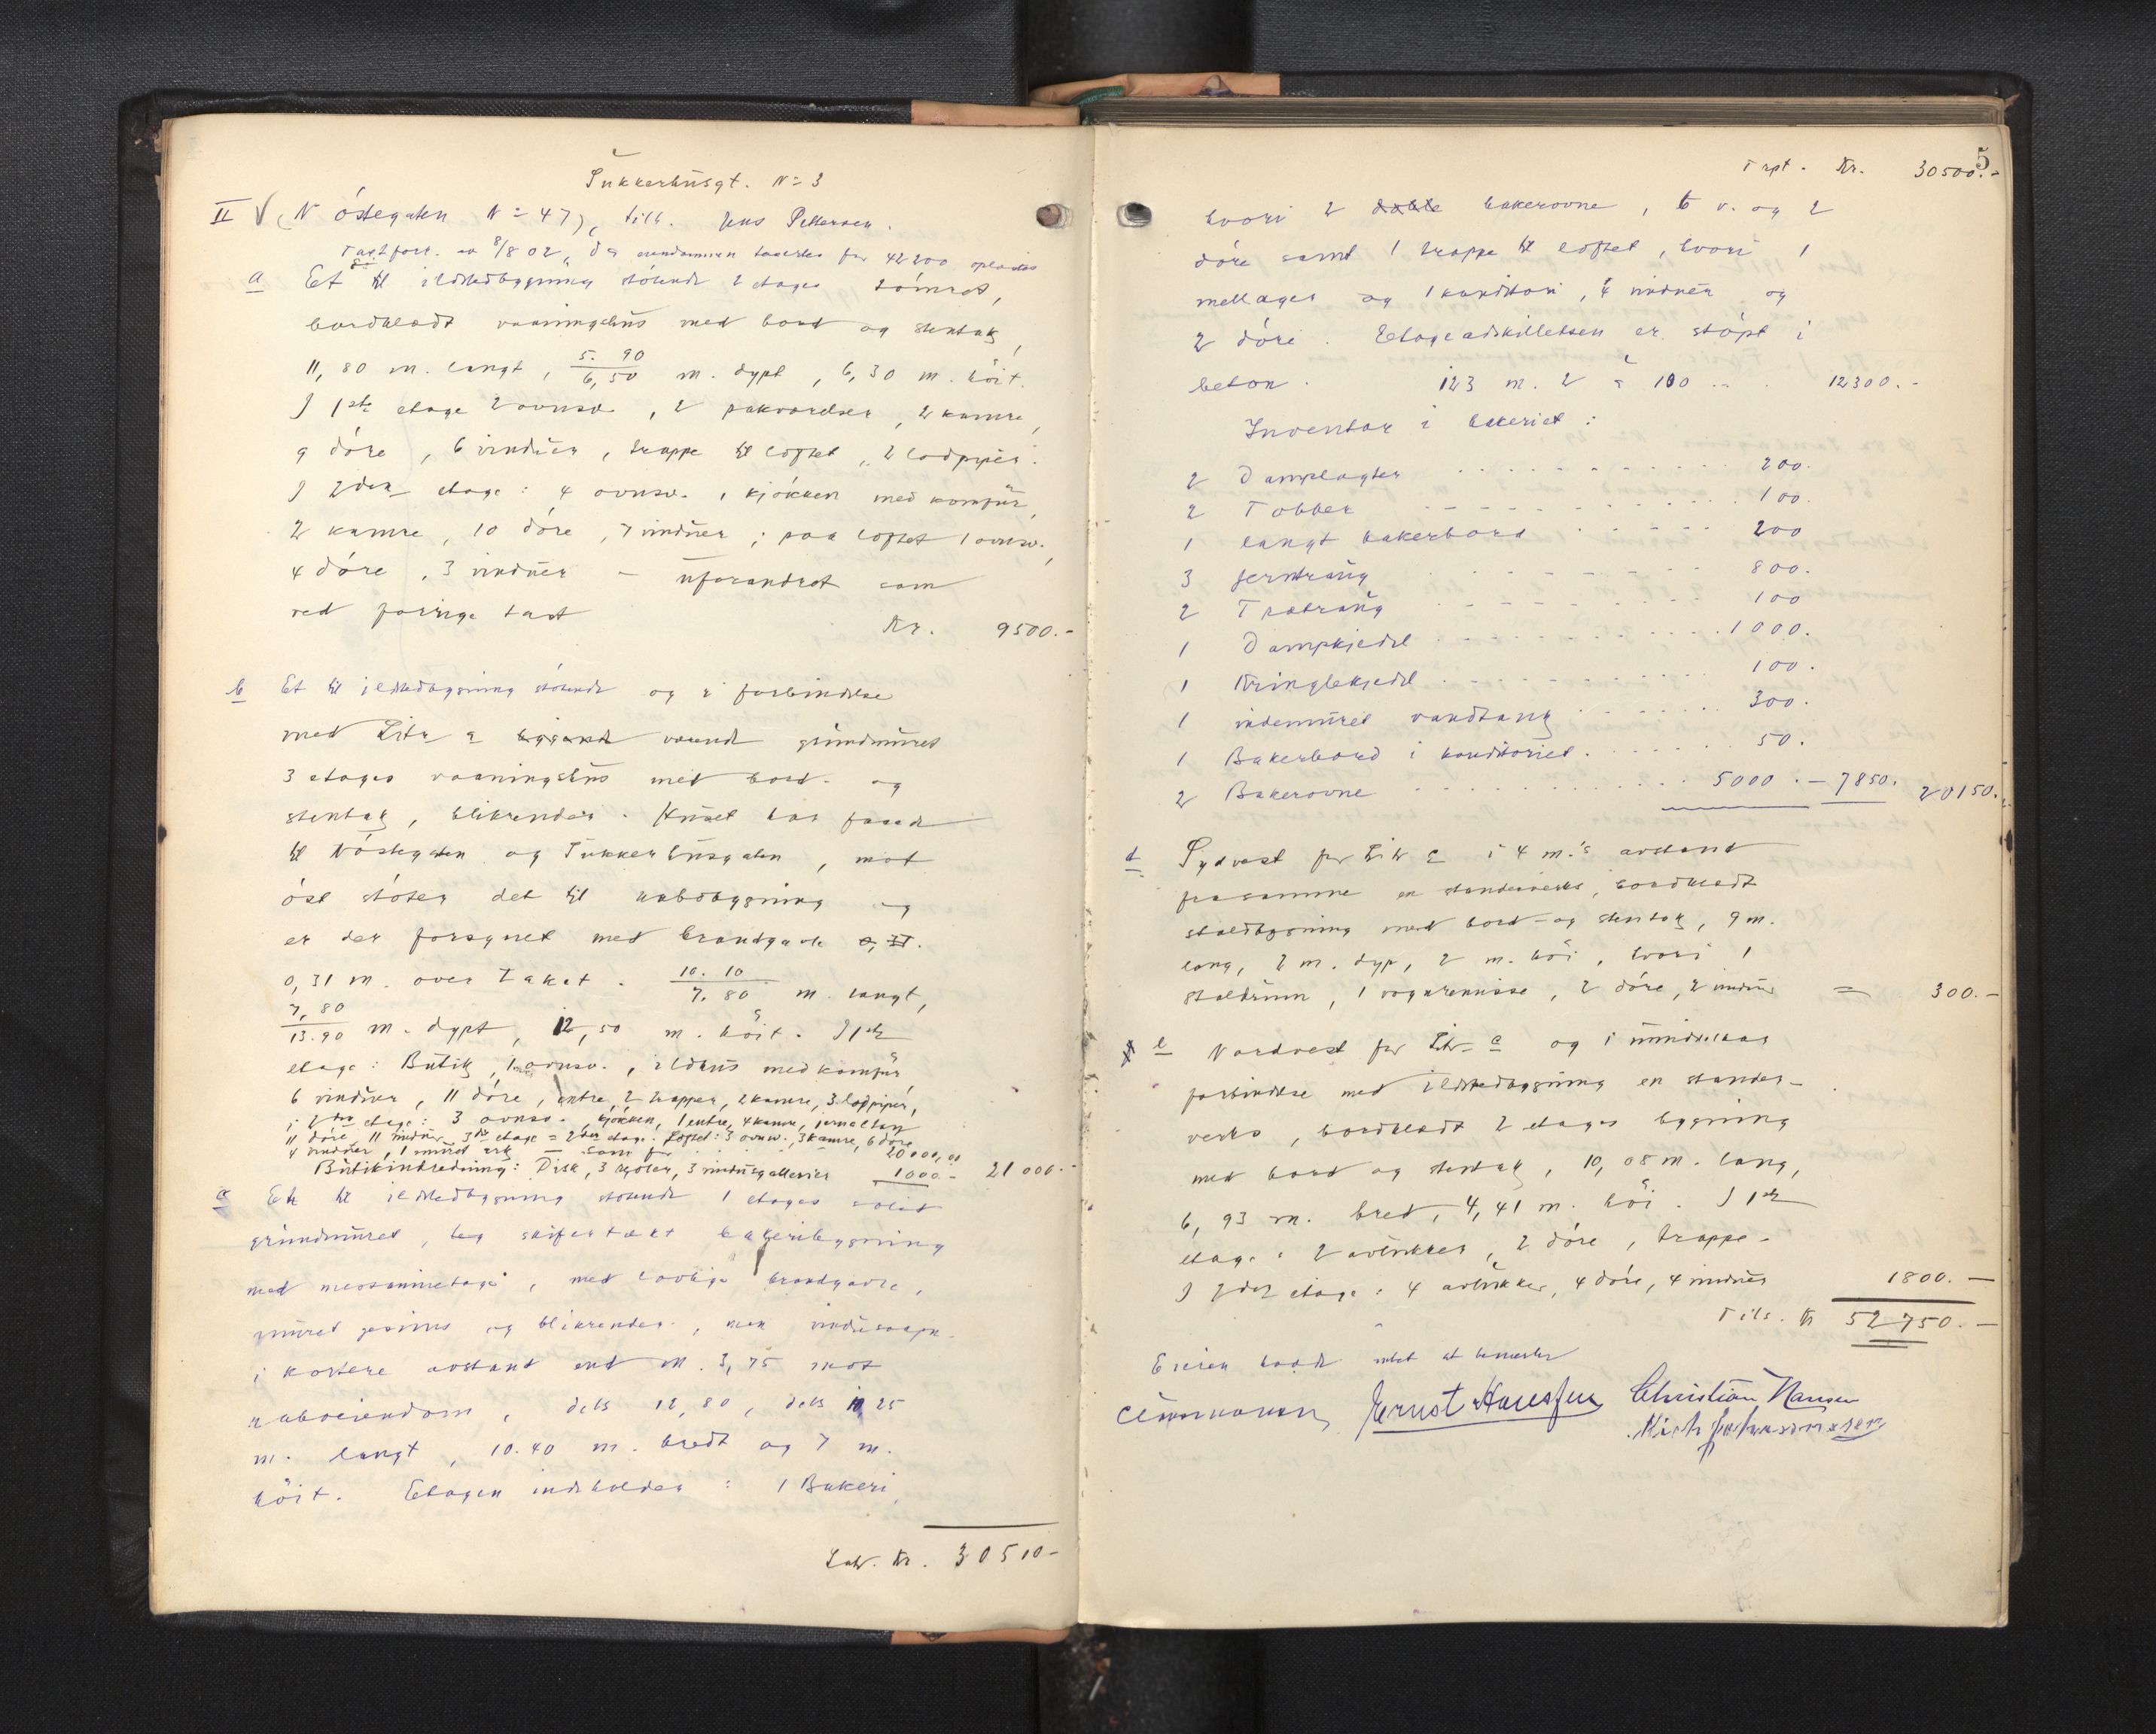 Sukkerhusgt. No 3
II V (Nöstegaten No 47), tilh. Jens Pettersen.
Taxtforr. av 8/8 02, da eiendommen taxertes for 42200 oplæstes
a Et til ildstedbygning stötende 2 etages tömret,
bordklædt vaaningshus med bord og stentag,
11,80 m. langt, 5.90/6,50 m. dypt, 6,30 m. höit.
I 1ste etage 2 ovnsv., 2 pakværelser, 2 kamre,
9 döre, 6 vinduer, trappe til loftet, 2 lodpiper.
I 2den etage: 4 ovnsv. 1 kjökken med komfür,
2 kamre, 10 döre, 7 vinduer; paa loftet 1 ovnsv.,
4 döre, 3 vinduer – uforandret som
ved forrige taxt Kr. 9500.-
b Et til ildstedbygning stötende og i forbindelse
med Litr a værende grundmuret
3 etages vaaningshus med bord- og
stentag, blikrender. Huset har facade
til Nöstegaten og Sukkerhusgaten, mot
öst stöter det til nabobygning og
er der forsynet med brandgavle
0,31 m. over taket. 10.10/7.80 m. langt,
7,80/13.90 m. dypt, 12,50 m. höit. I 1ste
etage: Butik, 1 ovnsv., ildhus med komfür,
6 vinduer, 11 döre, entre, 2 trapper, 2 kamre, 3 lodpiper,
i 2den etage: 3 ovnsv. kjökken, 1 entre, 4 kamre,
11 döre, 11 vinduer 3die etage = 2den etage. Loftet: 3 ovnsv., 3 kamre, 6 döre
4 vinduer, 1 muret ark = som för 20000,00
Butikindredning: Disk, 3 reoler, 3 vindusgallerier 1000.- 21000.-
c Et til ildstedbygning stötende 1 etages solid
grundmuret, skifertækt bakeribygning
med messaninetage, med lovlige brandgavle,
muret gesims og blikrender, men
i kortere avstand end m. 3,75 mot
naboeiendom, dels 12,80, dels 10,25
m. langt, 10.40 m. bredt og 7 m.
höit. Etagen indeholder: 1 Bakeri,
Lat. Kr. 30510-
5
Trpt. Kr. 30500.-
hvori 2 bakerovne, 6 v. og 2
döre samt 1 trappe til loftet, hvori 1
mellager og 1 konditori, 4 vinduer og
2 döre. Etageadskillelsen er stöpt i
beton. 123 m. 2 à 100 .. 12300.-
Inventar i bakeriet:
2 Damplagter 200.
2 Tobber 100.
1 langt bakerbord 200
3 jerntraug 800.
2 Trætraug 100
1 Dampkjedel 1000.
1 Kringlekjedel 100.
1 indemuret vandtank 300.
1 Bakerbord i konditoriet 50.
2 Bakerovne 5000.- 7850. 20150.
d Sydvest for Litr c i 4 m.'s avstand
fra samme en standerverks, bordklædt
staldbygning med bord- og stentag, 9 m.
lang, 2 m. dyp, 2 m. höi, hvori 1
staldrum, 1 vognremisse, 2 döre, 2 vinduer = 300.-
e Nordvest for Litr c og i umiddelbar
forbindelse med ildstedbygning en stander-
verks, bordklædt 2 etages bygning
med bord og stentag, 10,08 m. lang,
6,93 m. bred, 4,41 m. höi. I 1ste
etage: 2 avlukker, 2 döre, trappe.
I 2den etage: 4 avlukker, 4 döre, 4 vinduer 1800.-
Tils. Kr 52750.-
Eieren hadde intet at bemerke
Ernst Christian Hansen